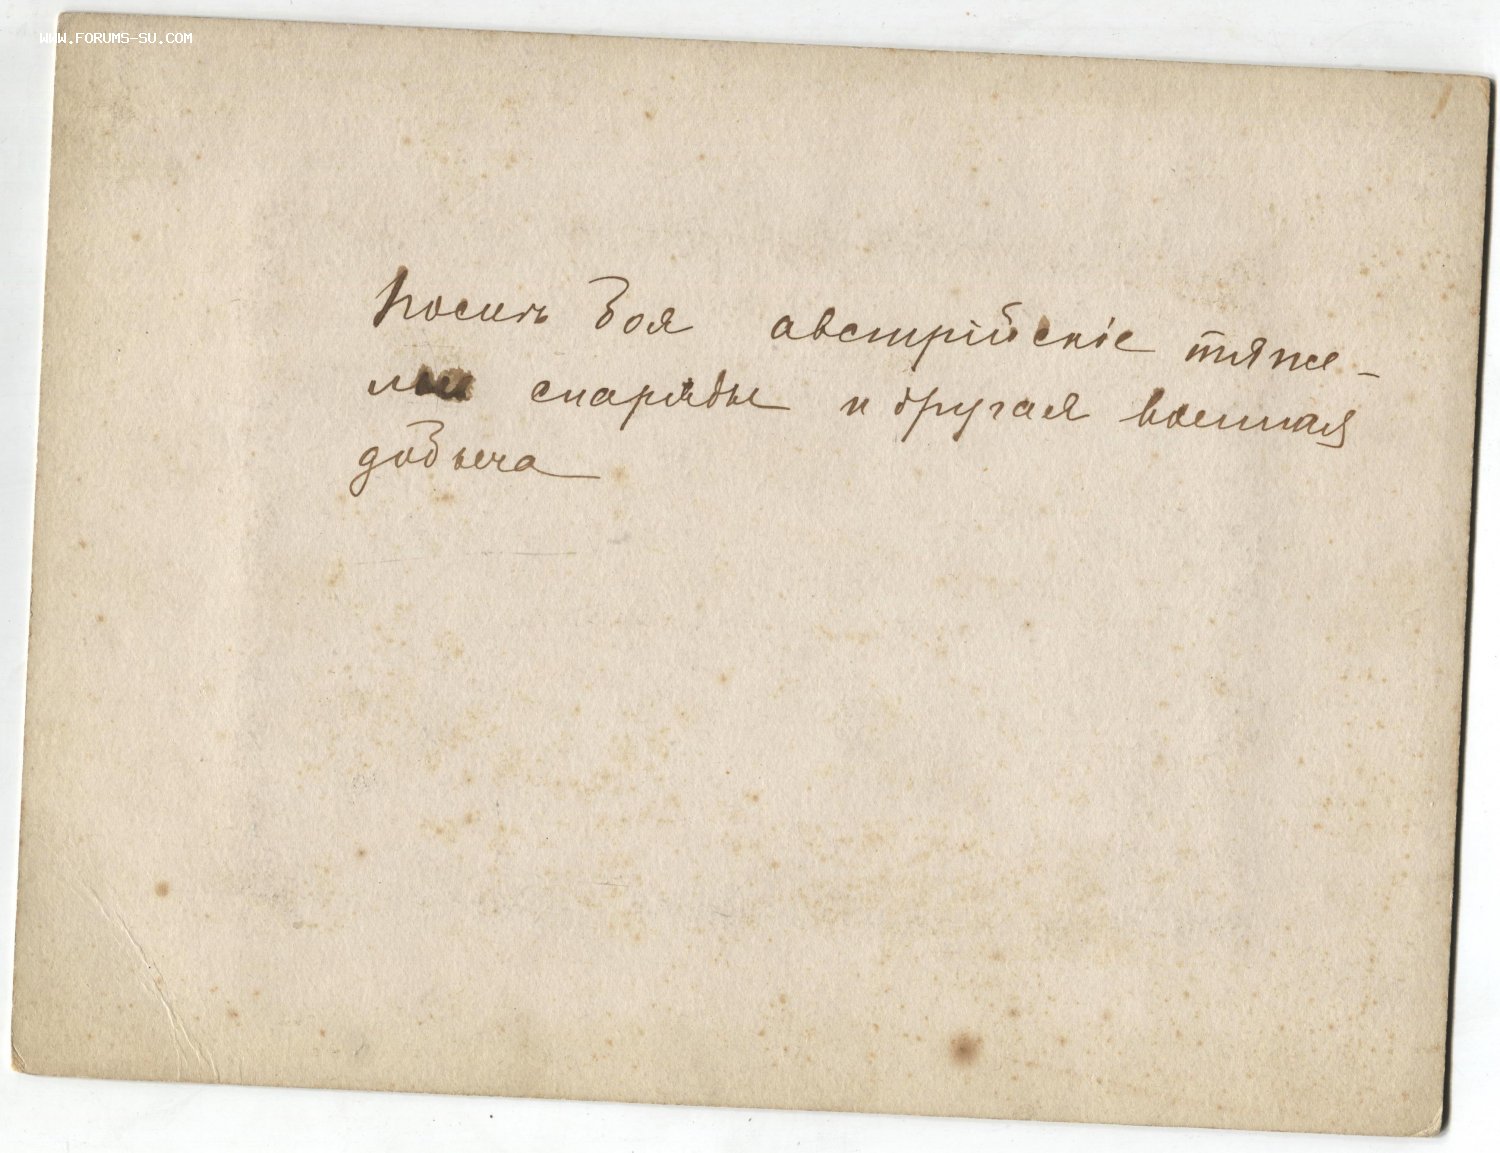 WWW.FORUMS-SU.COM
Послѣ боя австрійскіе тяже-
лые снаряды и другая военная
добыча